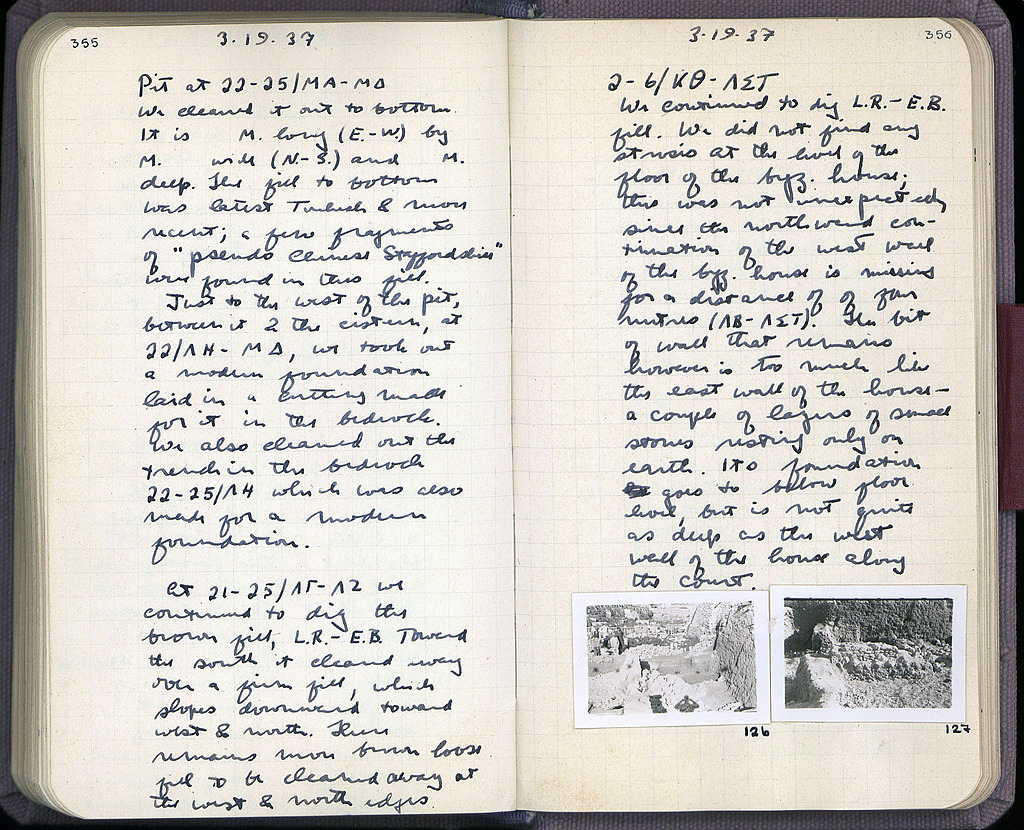 355
3·19·37
Pit at 22-25/ΜΑ-ΜΔ
We cleaned it out to bottom.
It is M. long (E-W.) by
M. wide (N-S.) and M.
deep. The fill to bottom
was latest Turkish & more
recent; a few fragments
of "pseudo Chinese Staffordshire"
were found in this fill.
Just to the west of the pit,
between it & the cistern, at
22/ΛΗ-ΜΔ, we took out
a modern foundation
laid in a cutting made
for it in the bedrock.
We also cleaned out the
trench in the bedrock
22-25/ΛΗ which was also
made for a modern
foundation.
At 21-25/ΛΓ-Λ2 we
continued to dig the
brown fill, L.R.-E.B. Toward
the south it cleaned away
over a firm fill, which
slopes downward toward
west & north. There
remains more brown loose
fill to be cleaned away at
the west & north edges.
3·19·37
356
2-6/ΚΘ-ΛΣΤ
We continued to dig L.R.-E.B.
fill. We did not find any
strosis at the level of the
floor of the byz. house;
this was not unexpected
since the northward con-
tinuation of the west wall
of the byz. house is missing
for a distance of of four
metres (ΛΒ-ΛΣΤ). The bit
of wall that remains
however is too much like
the east wall of the house—
a couple of layers of small
stones resting only on
earth. Its foundation
goes to below floor
level, but is not quite
as deep as the west
wall of the house along
the court.
126
127